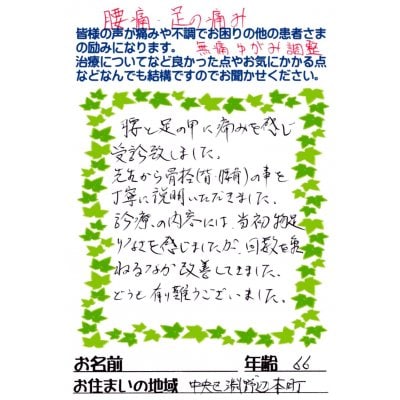 腰痛・足の痛み
皆様の声が痛みや不調でお困りの他の患者さま
の励みになります。 無痛ゆがみ調整
治療についてなど良かった点やお気にかかる点
などなんでも結構ですのでお聞かせください。
腰と足の甲に痛みを感じ
受診致しました。
先生から骨格(背・腰骨)の事を
丁寧に説明いただきました。
診療の内容には、当初物足
りなさを感じましたが、回数を重
ねるなか改善してきました。
どうも有り難うございました。
お名前 年齢 66
お住まいの地域 中央区淵野辺本町